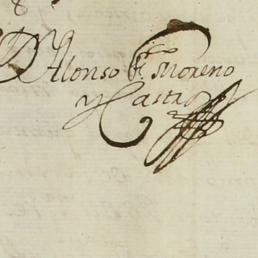 D Alonso Fr. Moreno
y Castro